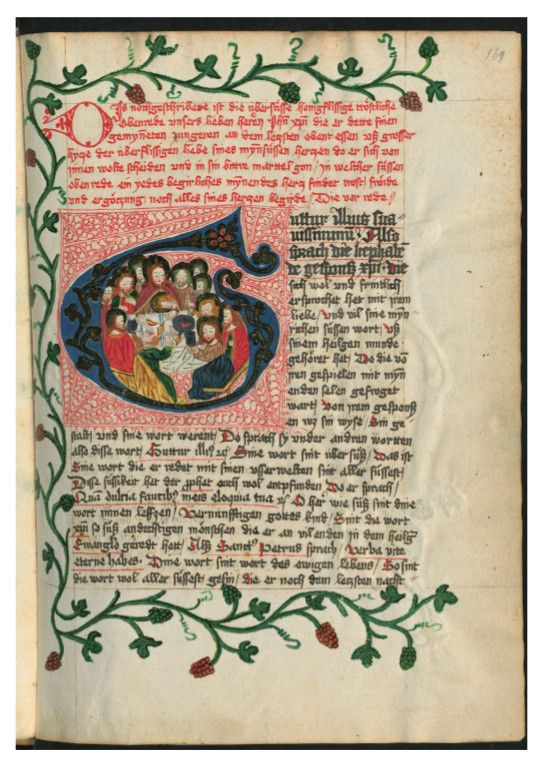 169
Dis nochgeschribede ist die übersüsse honigflissige tröstliche
obenrede unsers lieben heren Jhū xp̄i die er dette sinen
gemyneten Jungeren an dem letzsten obent essen uß grosser
hycze der überflissigen liebe sines mynsüssen herczen do er sich von
innen wolte scheiden und in sin bittre marttel gon / in welcher süssen
obenrede ein yedes begirliches mynendes hercz findet trost / fröide
und ergöczung noch alles sines herczen begirde / Die vor rede /
Guttur illius sua-
vissimum / Also
sprach die
de gespons xp̄i / die
sich wol und früntlich
ersprochet het mit irem
liebe / und vil sine myn
richen süssen wort / uß
sinem heilgen munde
gehöret het / Do die vo
iren gespielen mit myn
enden selen gefroget
wart / von irem gespons
en wz sin wyse / Sin ge
stalt / und sine wort werent / Do sprach sy under andren wortten
also disse wort / Guttur illi9 ꝛc / Sine wort sint über süß / Das ist
Sine wort die er redet mit sinen usserwelten sint aller süssest /
Disse süssikeit het der ꝓphet ouch wol entpfunden Do er sprach /
Quā dulcia faucib9 meis eloquia tua ꝛc / O her wie süß sint dine
wort minen leffzen / Vernünfftigen gottes kind / Sint die wort
xp̄i so süß andechtigen mönschen die er an vil enden in dem heilg
Ewangelō geredt hett / Alß Sanct9 Petrus sprach / Verba vite
eterne habes / Dine wort sint wort des ewigen lebens / So sint
die wort wol aller süssest gesin / die er noch dem letzsten nacht